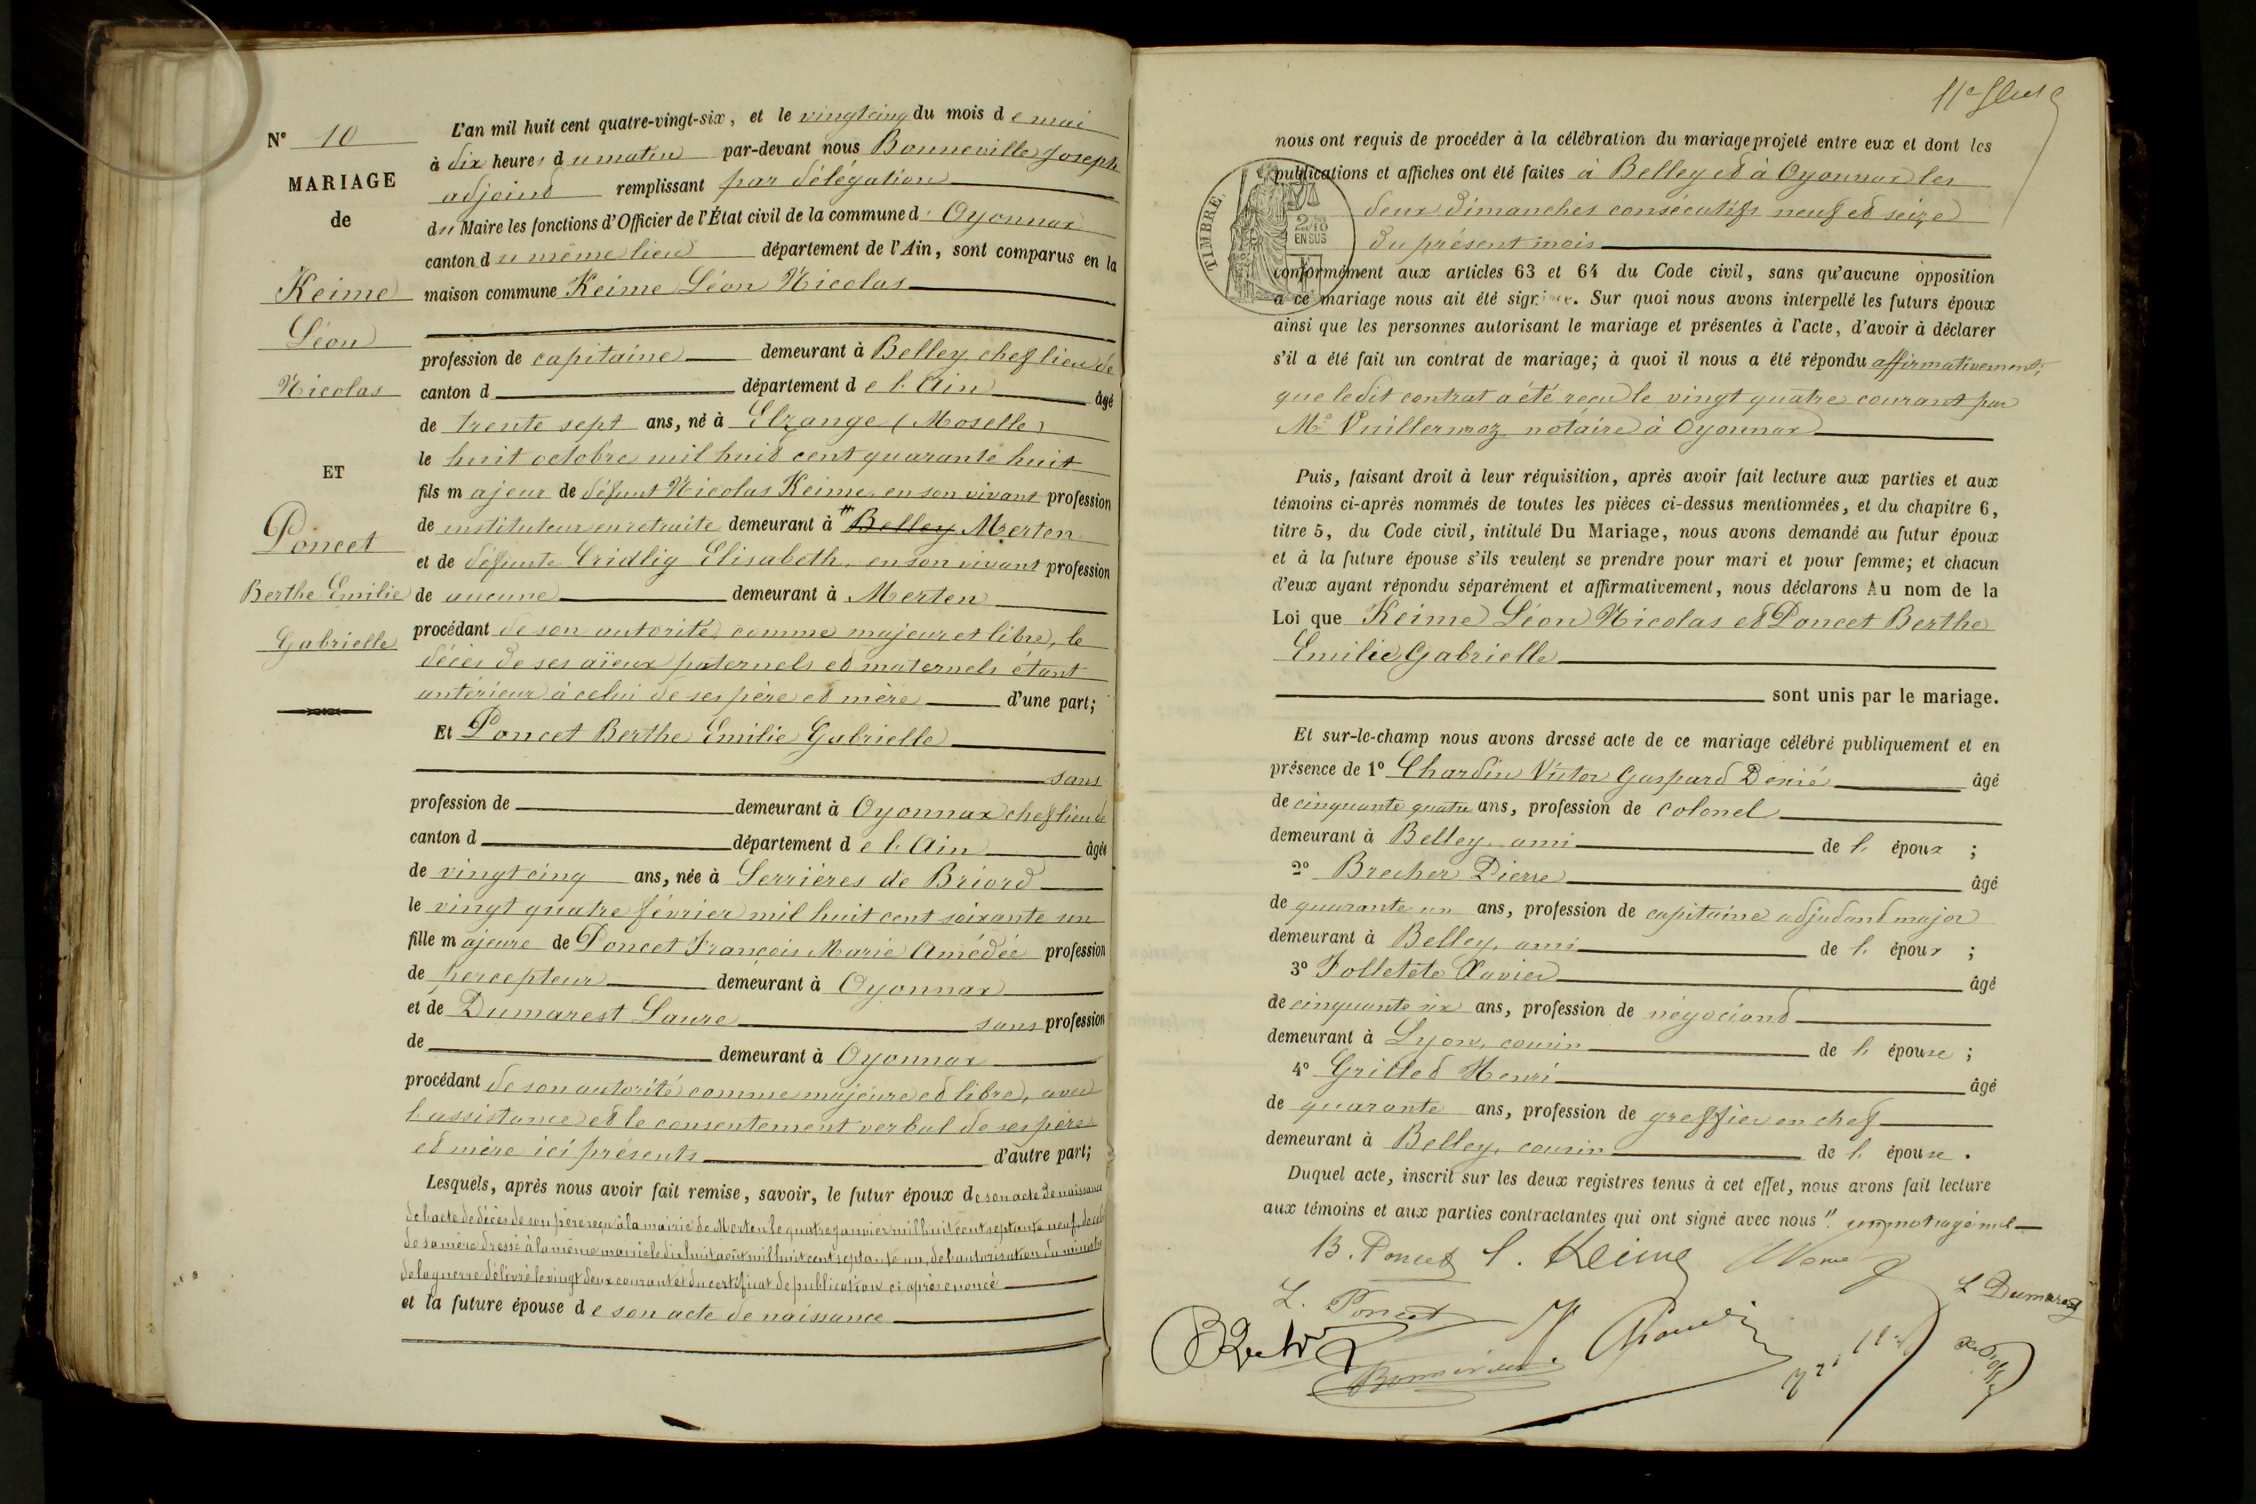 N° 10
MARIAGE
de
Keime
Léon
Nicolas
ET
Poncet
Berthe Emilie
Gabrielle
L'an mil huit cent quatre-vingt-six, et le vingt cinq du mois de mai
à dix heures du matin par-devant nous Bonneville Joseph
adjoint remplissant par délégation
du Maire les fonctions d'Officier de l'État civil de la commune d' Oyonnax
canton du même lieu département de l'Ain, sont comparus en la
maison commune Keime Léon Nicolas
profession de capitaine demeurant à Belley chef lieu de
canton d département de l'Ain âgé
de trente sept ans, né à Elzange (Moselle)
le huit octobre mil huit cent quarante huit
fils majeur de défunt Nicolas Keime, en son vivant profession
de instituteur en retraite demeurant à Belley Merten
et de défunte Cridlig Elisabeth, en son vivant profession
de aucune demeurant à Merten
procédant de son autorité comme majeur et libre, le
décès de ses aïeux paternels et maternels étant
antérieur à celui de ses père et mère d'une part;
Et Poncet Berthe Emilie Gabrielle
sans
profession de demeurant à Oyonnax chef lieu de
canton d département de l'Ain âgée
de vingt cinq ans, née à Serrières de Briord
le vingt quatre février mil huit cent soixante un
fille majeure de Poncet François Marie Amédée profession
de percepteur demeurant à Oyonnax
et de Dumarest Laure sans profession
de demeurant à Oyonnax
procédant de son autorité comme majeure et libre, avec
l'assistance et le consentement verbal de ses père
et mère ici présents d'autre part;
Lesquels, après nous avoir fait remise, savoir, le futur époux de son acte de naissance
de l'acte de décès de son père reçu à la mairie de Merten le quatre janvier mil huit cent septante neuf, de celui
de sa mère dressé à la même mairie le dix huit août mil huit cent septante un, de l'autorisation du ministre
de la guerre délivré le vingt deux courant et du certificat de publication ci après énoncé
et la future épouse de son acte de naissance
11e
nous ont requis de procéder à la célébration du mariage projeté entre eux et dont les
publications et affiches ont été faites à Belley et à Oyonnax les
deux dimanches consécutifs neuf et seize
du présent mois
TIMBRE.
2/10
EN SUS
conformément aux articles 63 et 64 du Code civil, sans qu'aucune opposition
à ce mariage nous ait été signifiée. Sur quoi nous avons interpellé les futurs époux
ainsi que les personnes autorisant le mariage et présentes à l'acte, d'avoir à déclarer
s'il a été fait un contrat de mariage; à quoi il nous a été répondu affirmativement,
que le dit contrat a été reçu le vingt quatre courant par
Me Vuillermoz notaire à Oyonnax
Puis, faisant droit à leur réquisition, après avoir fait lecture aux parties et aux
témoins ci-après nommés de toutes les pièces ci-dessus mentionnées, et du chapitre 6,
titre 5, du Code civil, intitulé Du Mariage, nous avons demandé au futur époux
et à la future épouse s'ils veulent se prendre pour mari et pour femme; et chacun
d'eux ayant répondu séparément et affirmativement, nous déclarons Au nom de la
Loi que Keime Léon Nicolas et Poncet Berthe
Emilie Gabrielle
sont unis par le mariage.
Et sur-le-champ nous avons dressé acte de ce mariage célébré publiquement et en
présence de 1° Chardin Victor Gaspard Désiré âgé
de cinquante quatre ans, profession de colonel
demeurant à Belley, ami de l' époux ;
2° Brecher Pierre âgé
de quarante un ans, profession de capitaine adjudant major
demeurant à Belley, ami de l' époux ;
3° Folletête Xavier âgé
de cinquante six ans, profession de négociant
demeurant à Lyon, cousin de l' épouse ;
4° Grillet Henri âgé
de quarante ans, profession de greffier en chef
demeurant à Belley, cousin de l' épouse .
Duquel acte, inscrit sur les deux registres tenus à cet effet, nous avons fait lecture
aux témoins et aux parties contractantes qui ont signé avec nous ". un mot rayé nul
B. Poncet L. Keime
L. Poncet L Dumarest